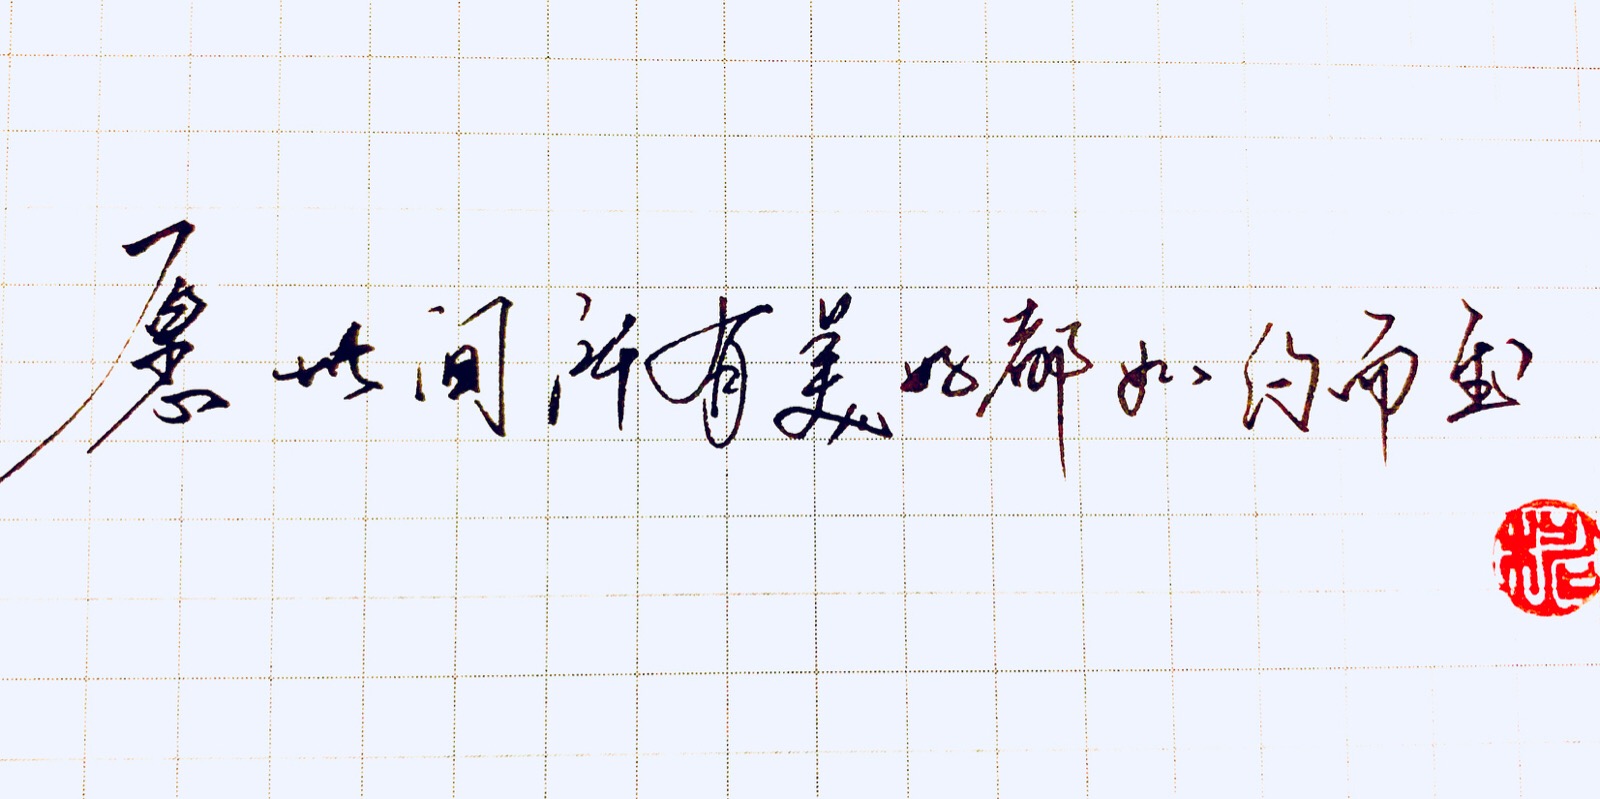 愿世间所有美好都如约而至